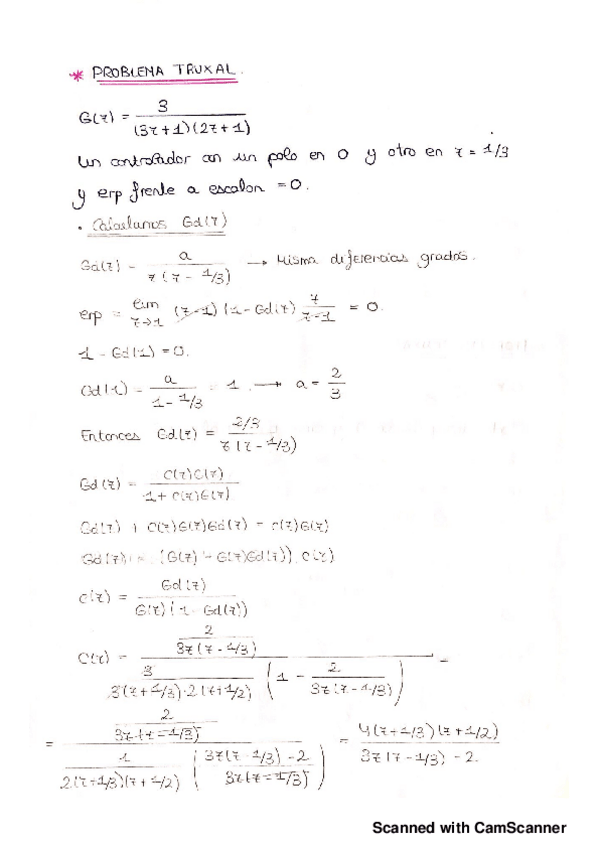 * PROBLEMA TRUXAL.
G(z) = 3 / (3z+1)(2z+1)
Un controlador con un polo en 0 y otro en z = 1/3
y erp frente a escalon = 0.
• Calculamos Gd(z)
Gd(z) = a / z(z - 1/3) → Misma diferencias grados.
erp = lim z→1 (z-1) (1-Gd(z)) z / z-1 = 0.
1 - Gd(1) = 0.
Gd(1) = a / 1 - 1/3 = 1 → a = 2/3
Entonces Gd(z) = 2/3 / z(z - 1/3)
Gd(z) = C(z)G(z) / 1 + C(z)G(z)
Gd(z) + C(z)G(z)Gd(z) = C(z)G(z)
Gd(z) = (G(z) - G(z)Gd(z)) C(z)
C(z) = Gd(z) / G(z)(1 - Gd(z))
C(z) = 2 / 3z(z - 1/3) / 3 / 3(z+1/3)·2(z+1/2) (1 - 2 / 3z(z - 1/3)) =
= 2 / 3z(z - 1/3) / 1 / 2(z+1/3)(z+1/2) (3z(z - 1/3) - 2 / 3z(z - 1/3)) = 4(z+1/3)(z+1/2) / 3z(z - 1/3) - 2.
Scanned with CamScanner